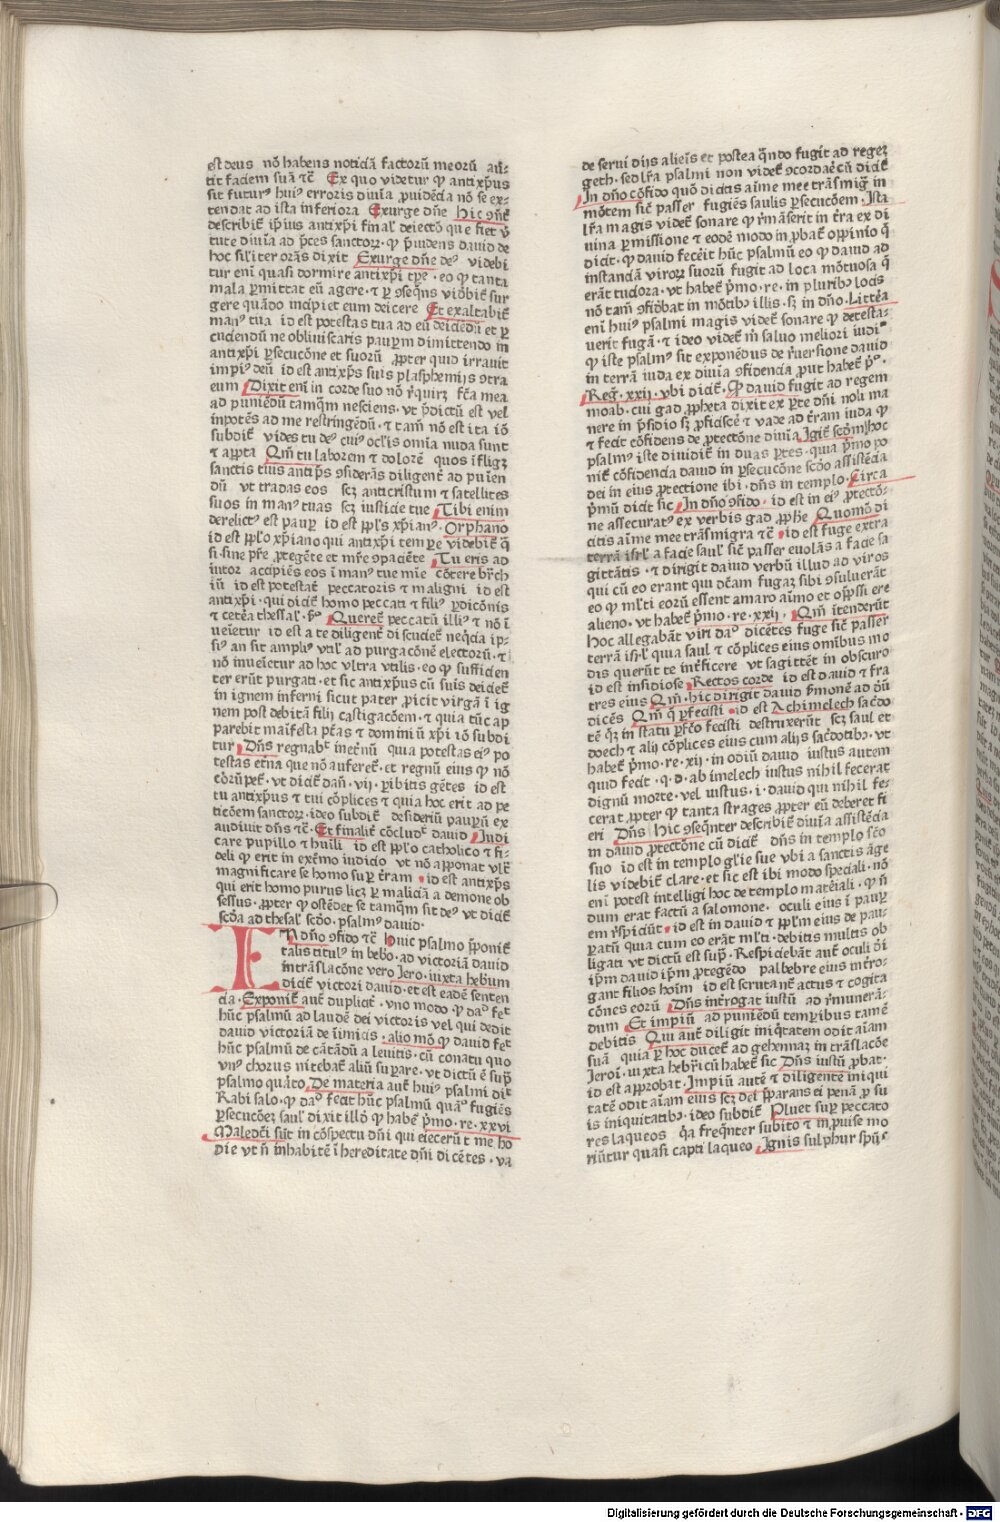 est deus nō habens noticiā factorū meorū au̅-
tit faciem suā ⁊c̄ Ex quo videtur ꝙ antixp̄us
sit futurꝰ huiꝰ erroris diuīa ꝓuidēcia nō se ex-
tendat ad ista inferiora Exurge dn̄e Hic ꝯn̄t
describit̄ ip̄ius antixp̄i final' deiectō que fiet v̄
tute diuīa ad p̄ces sanctoꝝ ꝙ p̄uidens dauid de
hoc sil'iter orās dixit Exurge dn̄e deꝰ videbi
tur enī quasi dormire antixp̄i tp̄e · eo ꝙ tanta
mala ꝑmittat eū agere · ⁊ ꝑ ꝯseq̄ns vidbit̄ sur
gere quādo incipiet eum deicere Et exaltabit̄
manꝰ tua id est potestas tua ad eū deiciēdū et ꝑ
cuciendū ne obliuiscaris pauꝑm dimittendo in
antixp̄i ꝑsecucōne et suorū ꝓpter quid irrauit
impiꝰ deū id est antixp̄s suis plasphemijs ꝯtra
eum Dixit enī in corde suo nō r̄quirꝫ fc̄a mea
ad puniēdū tamꝙ̄m nesciens · vt p̄dictū est vel
inpotēs ad me restringēdū · ⁊ tam̄ nō est ita iō
subdit̄ vides tu deꝰ cuiꝰ ocl'is omīa nuda sunt
⁊ aꝑta Qm̄ tu laborem ⁊ dolorē quos īfligꝫ
sanctis tuis antip̄s ꝯsiderās diligent̄ ad puīen
dū vt tradas eos scꝫ anticristum ⁊ satellites
suos in manꝰ tuas scꝫ iusticie tue Tibi enim
derelictꝰ est pauꝑ id est ppl's xp̄ianꝰ · Orphano
id est ppl'o xp̄iano qui antixp̄i temꝑe videbit̄ q̄
si sine pr̄e ꝓtegēte et mr̄e ꝯpaciēte Tu eris ad
iutor accipiēs eos ī manꝰ tue mīe cōtere br̄ch
iū id est potestat̄ peccatoris ⁊ maligni id est
antixp̄i · qui dicit̄ homo peccati ⁊ filiꝰ ꝑdicōnis
⁊ ceter̄a thessal' · p̄ꝰ Queret̄ peccatū illiꝰ ⁊ nō ī
ueīetur id est a te diligent̄ di scuciet̄ neq̄cia ip-
siꝰ an sit ampliꝰ vtil' ad purgacōnē electorū · ⁊
nō inueīetur ad hoc vltra vtilis · eo ꝙ sufficien
ter erūt purgati · et sic antixp̄us cū suis deiciet̄
in ignem inferni sicut pater ꝓicit virgā ī ig
nem post debitā filij castigacōem · ⁊ quia tūc ap
parebit maīfesta pc̄as ⁊ dominiū xp̄i iō subdi
tur Dn̄s regnabᵗ inet̄nū quia potestas eiꝰ po
testas etn̄a que nō auferet̄ · et regnū eiꝰ ꝙ nō
cōrūpet̄ · vt dicit̄ dan̄ · vij · ꝑibitis gētes id est
tu antixp̄us ⁊ tui cōplices ⁊ quia hoc erit ad pe
ticōem sanctoꝝ · ideo subdit̄ desideriū pauꝑū ex
audiuit dn̄s ⁊c̄ · Et finalit̄ cōcludᵗ dauid Iudi
care pupillo ⁊ huīli id est ppl'o catholico ⁊ fi-
deli ꝙ erit in exēmo iudicio vt nō aꝓponat vlt̄
magnificare se homo suꝑ t̄ram · id est antixp̄s
qui erit homo purus licꝫ ꝑ maliciā a demone ob
sessus · ꝓpter ꝙ ostēdet se tamꝙ̄m sit deꝰ vt dicit̄
scd̄a ad thesal' scd̄o · psalmꝰ dauid ·
IN dn̄o ꝯfido ⁊c̄ huic psalmo p̄ponit̄
talis titulꝰ in hebo · ad victoriā dauid
in trāslacōne vero Jero · iuxta hebum
dicit̄ victori dauid · et est eadē senten
cia · Exponit̄ aut̄ duplicit̄ · vno modo ꝙ daᵈ fet
hūc psalmū ad laudē dei victoris vel qui dedit
dauid victoriā de īimicis · alio mō ꝙ dauid fet
hūc psalmū de cātādū a leuitis · cū conatu quo
vnꝰ chorus nitebat̄ aliū suꝑare · vt dictū ē sup̄
psalmo quarto De materia aut̄ huiꝰ psalmi dīt
Rabi salo · ꝙ daᵈ fecit hūc psalmū quaꝰ fugiēs
ꝑsecucōeꝫ saul' dixit illō ꝙ habet̄ p̄mo · re · xxvi
Maledc̄i sūt in cōspectu dn̄i qui eiecerūt me ho
die vt n̄ īnhabitē ī hereditate dn̄i dicētes · va
de serui diis alieīs et postea q̄ndo fugit ad regeꝫ
geth · sed lr̄a psalmi non videt̄ ꝯcordar̄ cū dicit̄
In dn̄o cōfido quō dicitas aīme mee trāsmigr̄ in
mōtem sic̄ passer fugiēs saulis ꝑsecucōem · Ista
lr̄a magis videt̄ sonare ꝙ r̄māserit in t̄ra ex di
uina ꝑmissione ⁊ eodē modo inꝓbat̄ oppinio q̄
dicit · ꝙ dauid fecēit hūc psalmū eo ꝙ dauid ad
instanciā viroꝝ suorū fugit ad loca mōtuosa q̄
erāt tuciora · vt habet̄ p̄mo · re · in pluribꝰ locis
nō tam̄ ꝯfidbat in mōtibꝰ illis · sꝫ in dn̄o · Litter̄a
enī huiꝰ psalmi magis videt̄ sonare ꝙ detesta-
uerit fugā · ⁊ ideo videt̄ m̄ saluo meliori iudiᵒ
ꝙ iste psalmꝰ sit exponēdus de r̄uersione dauid
in terrā iuda ex diuīa ꝯfidencia ꝓut habet̄ p̄ᵒ ·
Reg · xxij · vbi dicit̄ · Ꝙ dauid fugit ad regem
moab · cui gad ꝓpheta dixit ex ꝑte dn̄i noli ma
nere in p̄sidio sꝫ ꝓficiscē ⁊ vade ad t̄ram iuda ꝙ
⁊ fecit cōfidens de ꝓtectōne diuīa Igit̄ scd̄m hoc
psalmꝰ iste diuidit̄ in duas ꝑtes · quia p̄mo po
nit̄ cōfidencia dauid in ꝑsecucōne scd̄o assistēcia
dei in eius ꝓtectione ibi · dn̄s in templo · Circa
p̄mū dicit sic In dn̄o ꝯfido · id est in eiꝰ ꝓtectō-
ne assecuratꝰ ex verbis gad ꝓphe Quomō di
citis aīme mee trāsmigra ⁊c̄ · id est fuge extra
terrā isr̄l' a facie saul' sic̄ passer euolās a facie sa
gittātis · ⁊ dirigit dauid verbū illud ad viros
qui cū eo erant qui dc̄am fugaꝫ sibi ꝯsuluerāt
eo ꝙ ml'ti eorū essent amaro aīmo et op̄ssi ere
alieno · vt habet̄ p̄mo · re · xxij · Qm̄ ītenderūt
hoc allegabāt viri daᵈ dicētes fuge sic̄ passer
terrā isr̄l' quia saul ⁊ cōplices eius omībus mo
dis querūt te int̄ficere vt sagittēt in obscuro
id est insidiose Rectos corde id est dauid ⁊ fra
tres eius Qm̄ · hic dirigit dauid p̄monē ad dn̄
dicēs Qm̄ q̄ ꝑfecisti · id est Achimelech sac̄do
tē qꝫ in statu ꝑfc̄o fecisti destruxerūt scꝫ saul et
doech ⁊ alij cōplices eius cum alijs sac̄dotibꝰ · vt
habet̄ p̄mo · re · xij · in odiū dauid iustus autem
quid fecit · q · d · abimelech iustus nihil fecerat
dignū morte · vel iustus · i · dauid qui nihil fe-
cerat ꝓpter ꝙ tanta strages ꝓpter eū deberet fi
eri Dn̄s Hic ꝯseq̄nter describit̄ diuīa assistēcia
in dauid ꝓtectōne cū dicit̄ dn̄s in templo sc̄o
suo id est in templo gl'ie sue vbi a sanctis āge
lis videbit̄ clare · et sic est ibi modo speciali · nō
enī potest intelligi hoc de templo mat̄iali · ꝙ n̄
dum erat factū a salomone · oculi eius ī pauꝑ
em r̄spiciūt · id est in dauid ⁊ ppl'm eius de pau-
ꝑatū quia cum eo erāt ml'ti · debitis multis ob
ligati vt dictū est sup̄ · Respiciebāt aut̄ oculi dī
ip̄m dauid ip̄m ꝓtegēdo palbebre eius int̄ro-
gant filios hoīm id est scruta nt̄ actus ⁊ cogita
cōnes eorū Dn̄s int̄rogat iustū ad r̄munerā-
dum Et impiū ad puniēdū temꝑibus tamē
debitis Qui aut̄ diligit iniq̄tatem odit aīam
suā quia ꝑ hoc ducet̄ ad gehennaꝫ in trāslacōe
Jeroī · iuxta hebr̄icū habet̄ sic Dn̄s iustū ꝓbat ·
id est approbat · Impiū autē ⁊ diligentē iniqui
tatē odit aīam eius scꝫ dei p̄parans ei penā ꝑ su
is iniquitatibꝰ · ideo subdit̄ Pluet suꝑ peccato
res laqueos q̄a freq̄nter subito ⁊ inꝓuise mo
riūtur quasi capti laqueo Ignis sulphur sp̄us
Digitalisierung gefördert durch die Deutsche Forschungsgemeinschaft - DFG